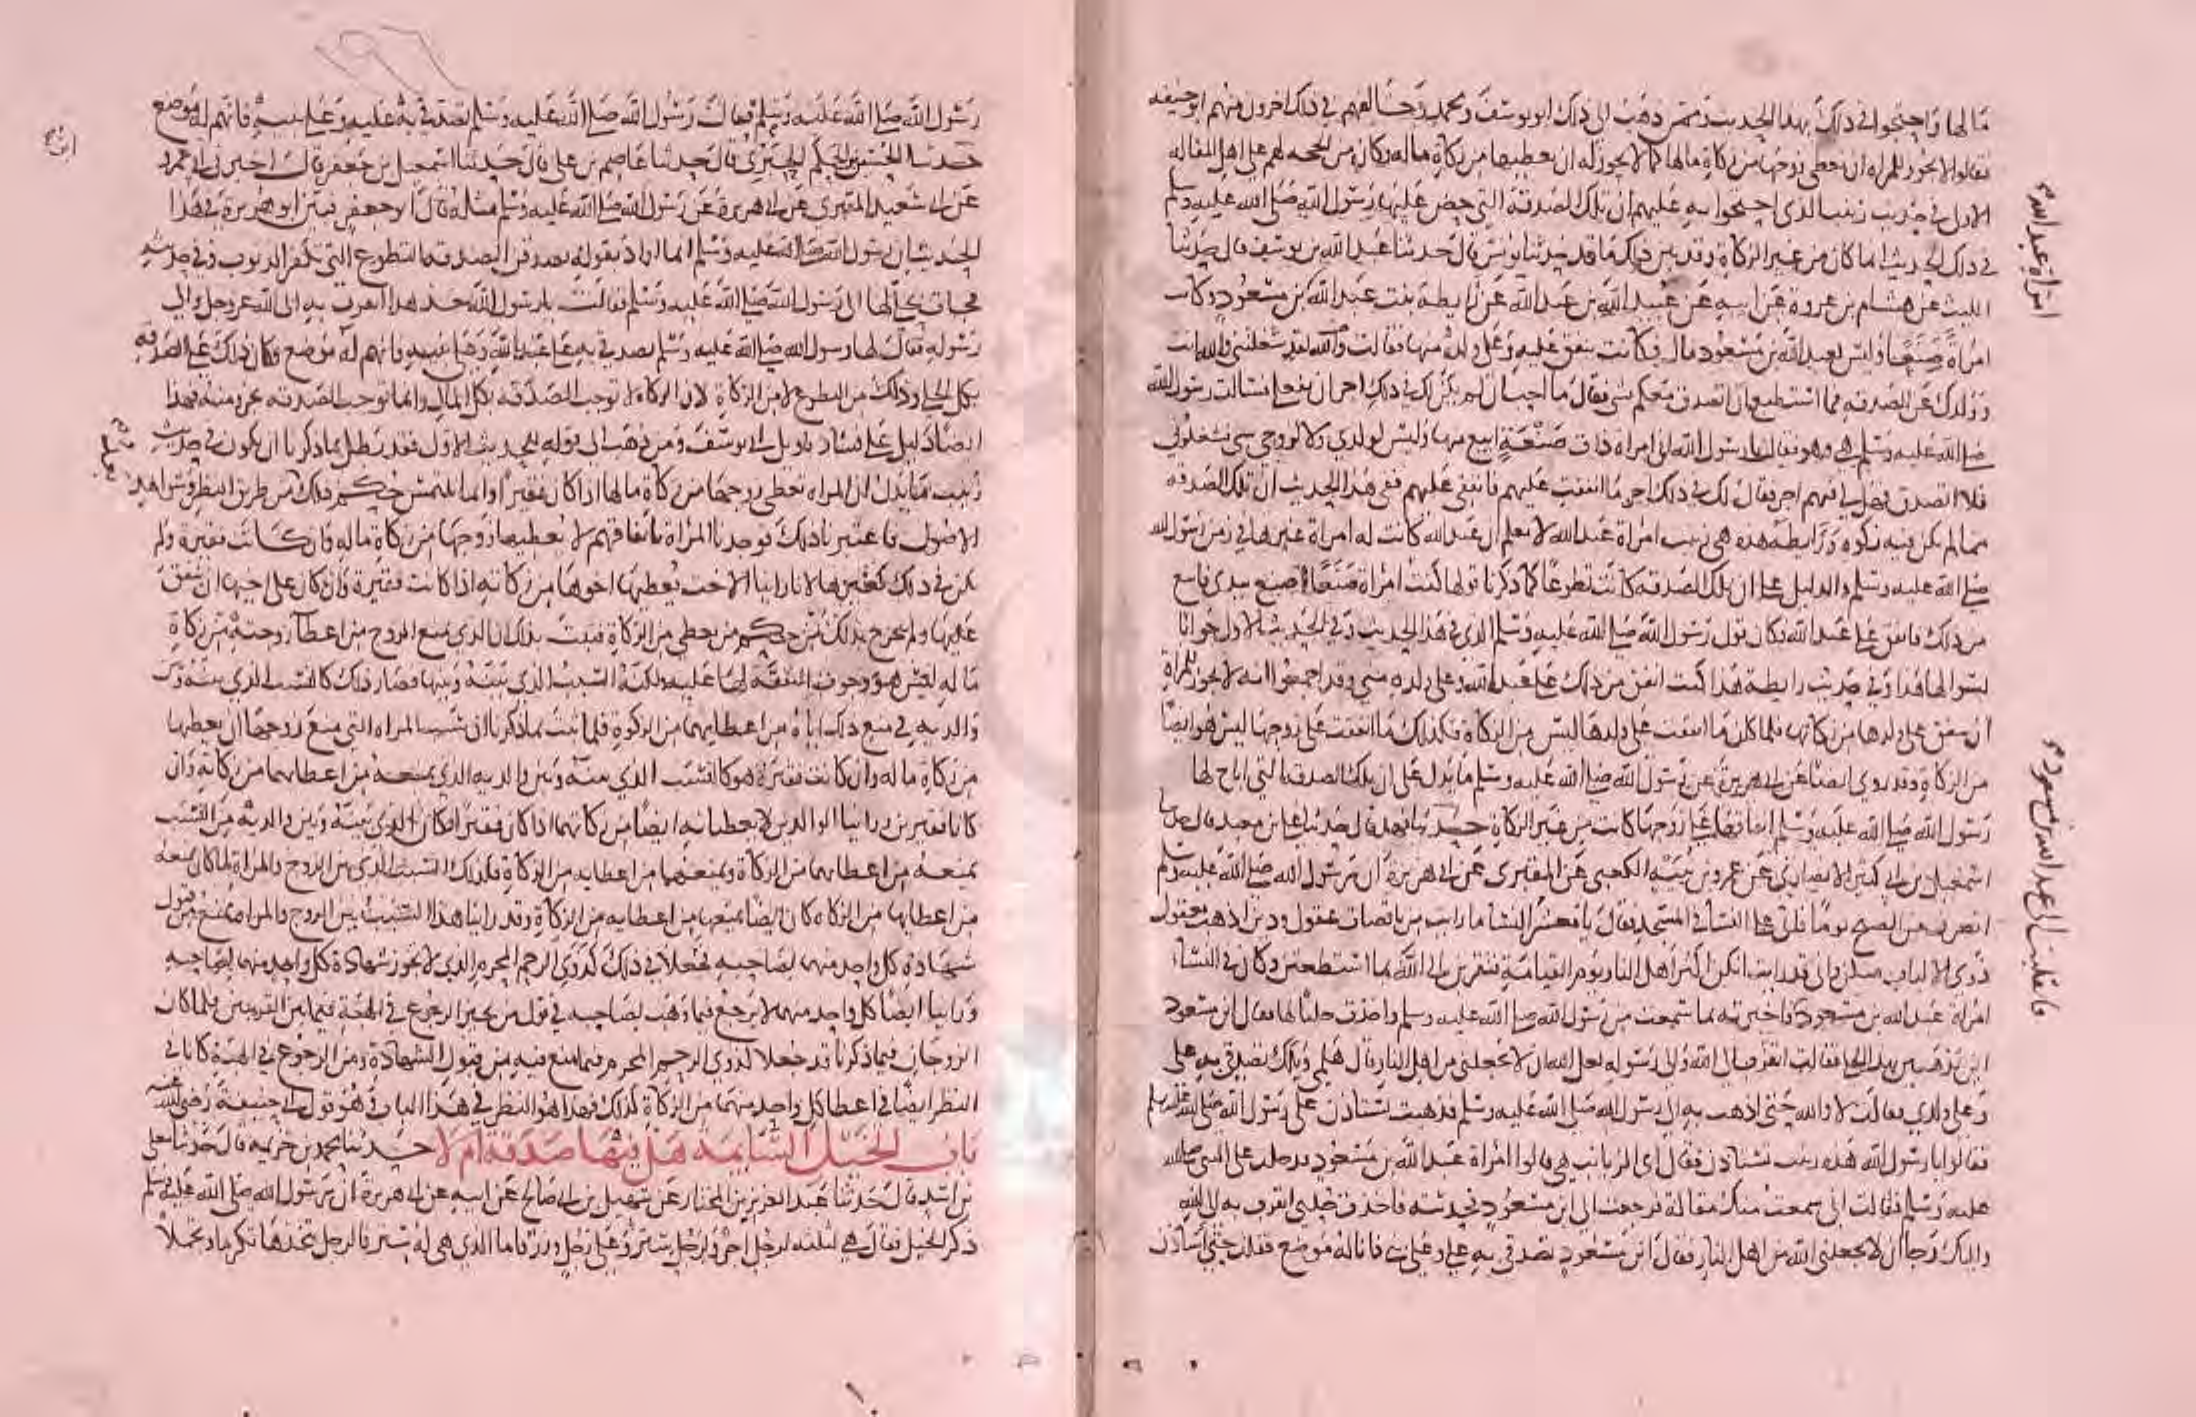 مالها واحتجوا في ذلك بهذا الحديث وممن ذهب الى ذلك ابو يوسف ومحمد وخالفهم في ذلك اخرون منهم ابو حنيفه
فقالوا لا يجوز للمراه ان تعطي زوجها من زكاة مالها كما لا يجوز له ان يعطيها من زكاة ماله وكان من الحجه لهم على اهل المقاله
الاولى في حديث زينب الذي احتجوا به عليهم ان تلك الصدقة التي حض عليها رسول الله صلى الله عليه وسلم
في ذلك الحديث انما كان من غير الزكاة وقد بين ذلك ما قد حدثنا يونس قال حدثنا عبد الله بن يوسف قال حدثنا
الليث عن هشام بن عروة عن ابيه عن عبيد الله بن عبد الله عن رايطة بنت عبد الله امراة عبد الله بن مسعود وكانت
امراة صنعا وليس لعبد الله بن مسعود مال فكانت تنفق عليه وعلى ولده منها فقالت والله لقد شغلتني والله انت
وولدك عن الصدقه فما استطيع ان اتصدق معكم بشي فقال ما احب ان لم يكن لك في ذلك اجر ان تفعلي فسالت رسول الله
صلى الله عليه وسلم هي وهو فقالت يا رسول الله اني امراة ذات صنعة ابيع منها وليس لولدي ولا لزوجي شي فشغلوني
فلا اتصدق فهل لي فيهم اجر فقال لك في ذلك اجر ما انفقت عليهم فانفقي عليهم ففي هذا الحديث ان تلك الصدقه
مما لم يكن فيه زكوة ورايطة هذه هي زينب امراة عبد الله لا يعلم ان عبد الله كانت له امراة غيرها في زمن رسول الله
صلى الله عليه وسلم والدليل على ان تلك الصدقه كانت تطوعا كما ذكرنا قولها كنت امراة صنعا اصنع بيدي فابيع
من ذلك فانفق على عبد الله فكان قول رسول الله صلى الله عليه وسلم الذي في هذا الحديث وفي الحديث الاول جوابا
لسوالها هذا وفي حديث رايطة هذا كنت انفق من ذلك على عبد الله وعلى ولده مني وقد اجمعوا انه لا يجوز للمراة
ان تنفق على ولدها من زكاتها فلما كان ما انفقت على ولدها ليس من الزكاة فكذلك ما انفقت على زوجها ليس هو ايضا
من الزكاة وقد روي ايضا عن ابي هريرة عن رسول الله صلى الله عليه وسلم ما يدل على ان تلك الصدقة التي اباح لها
رسول الله صلى الله عليه وسلم انفاقها على زوجها كانت من غير الزكاة حدثنا فهد قال حدثنا علي بن معبد قال حدثنا
اسمعيل بن ابي كثير الانصاري عن عمرو بن نبيه الكعبي عن المقبري عن ابي هريرة ان رسول الله صلى الله عليه وسلم
انصرف من الصبح يوما فاتى على النسا في المسجد فقال يا معشر النسا ما رايت من ناقصات عقول ودين اذهب بعقول
ذوي الالباب منكن واني قد رايت انكن اكثر اهل النار يوم القيامة فتقربن الى الله بما استطعتن وكان في النسا
امراة عبد الله بن مسعود فاخبرته بما سمعت من رسول الله صلى الله عليه وسلم واخذت حليا لها فقال ابن مسعود
اين تذهبين بهذا الحلي فقالت اتقرب به الى الله والى رسوله لعل الله ان لا يجعلني من اهل النار قال هلمي ويلك تصدقي به علي
وعلى ولدي فقالت لا والله حتى اذهب به الى رسول الله صلى الله عليه وسلم فذهبت تستاذن على رسول الله صلى الله عليه وسلم
فقالوا يا رسول الله هذه زينب تستاذن فقال اي الزيانب هي قالوا امراة عبد الله بن مسعود فدخلت على النبي صلى الله
عليه وسلم فقالت اني سمعت منك مقالة فرجعت الى ابن مسعود فحدثته فاخذت حليي اتقرب به الى الله
واليك رجا ان لا يجعلني الله من اهل النار فقال ابن مسعود تصدقي به علي وعلى بني فانا له موضع فقلت حتى استاذن
امراة عبد الله
فانقلبت الى عبد الله بن مسعود
رسول الله صلى الله عليه وسلم فقال رسول الله صلى الله عليه وسلم تصدقي به عليه وعلى بنيه فانهم له موضع
حدثنا الحسين بن الحكم الحبري قال حدثنا عاصم بن علي قال حدثنا اسمعيل بن جعفر قال اخبرني ابن ابي عمرو
عن ابي سعيد المقبري عن ابي هريرة عن رسول الله صلى الله عليه وسلم مثله قال ابو جعفر فبين ابو هريرة في هذا
الحديث ان رسول الله صلى الله عليه وسلم انما اراد بقوله تصدقن الصدقة التطوع التي تكفر الذنوب وفي حديثه
فجات بحلي لها الى رسول الله صلى الله عليه وسلم فقالت يا رسول الله خذ هذا اتقرب به الى الله عز وجل والى
رسوله فقال لها رسول الله صلى الله عليه وسلم تصدقي به على عبد الله وعلى بنيه فانهم له موضع فكان ذلك على الصدقه
بكل الحلي وذلك من التطوع لا من الزكاة لان الزكاة لا توجب الصدقة بكل المال وانما توجب الصدقه بجزء منه فهذا
ايضا دليل على فساد تاويل ابي يوسف ومن ذهب الى قوله للحديث الاول فقد بطل بما ذكرنا ان يكون في حديث
زينب ما يدل ان المراه تعطي زوجها من زكاة مالها اذا كان فقيرا وانما نلتمس حكم ذلك من طريق النظر وشواهد
الاصول فاعتبرنا ذلك فوجدنا المراة باتفاقهم لا يعطيها زوجها من زكاة ماله وان كانت فقيرة ولم
تكن في ذلك كغيرها لانا راينا الاخت يعطيها اخوها من زكاته اذا كانت فقيرة وان كان على اخيها ان ينفق
عليها ولم تخرج بذلك من حكم من يعطى من الزكاة فثبت بذلك ان الذي يمنع الزوج من اعطا زوجته من زكاة
ماله ليس هو وجوب النفقة لها عليه ولكنه السبب الذي بينه وبينها فصار ذلك كالنسب الذي بينه وبين
والديه في منع ذلك اياه من اعطايهما من الزكوة فلما ثبت بما ذكرنا ان سبب المراه التي منع زوجها ان يعطيها
من زكاة ماله وان كانت فقيرة هو كالنسب الذي بينه وبين والديه الذي يمنعه من اعطايهما من زكاته وان
كانا فقيرين وراينا الوالدين لا يعطيانه ايضا من زكاتهما اذا كان فقيرا فكان الذي بينه وبين والديه من النسب
يمنعه من اعطايهما من الزكاة ويمنعهما من اعطايه من الزكاة فكذلك السبب الذي بين الزوج والمراة لما كان يمنعه
من اعطايها من الزكاة كان ايضا يمنعها من اعطايه من الزكاة وقد راينا هذا السبب بين الزوج والمراة يمنع من قبول
شهادة كل واحد منهما لصاحبه فجعلا في ذلك كذوي الرحم المحرم الذي لا تجوز شهادة كل واحد منهما لصاحبه
وراينا ايضا كل واحد منهما لا يرجع فيما وهب لصاحبه في قول من يجيز الرجوع في الهبة فيما بين القريبين فلما كان
الزوجان فيما ذكرنا قد جعلا كذوي الرحم المحرم فيما منع فيه من قبول الشهادة ومن الرجوع في الهبة كانا في
النظر ايضا في اعطا كل واحد منهما من الزكاة كذلك فهذا هو النظر في هذا الباب وهو قول ابي حنيفة رضي الله عنه
باب الخيل السايمة هل فيها صدقة ام لا حدثنا محمد بن خزيمه قال حدثنا معلى
بن اسد قال حدثنا عبد العزيز بن المختار عن سهيل بن ابي صالح عن ابيه عن ابي هريرة ان رسول الله صلى الله عليه وسلم
ذكر الخيل فقال هي لثلثه لرجل اجر ولرجل ستر وعلى رجل وزر فاما الذي هي له ستر فالرجل يتخذها تكرما وتجملا